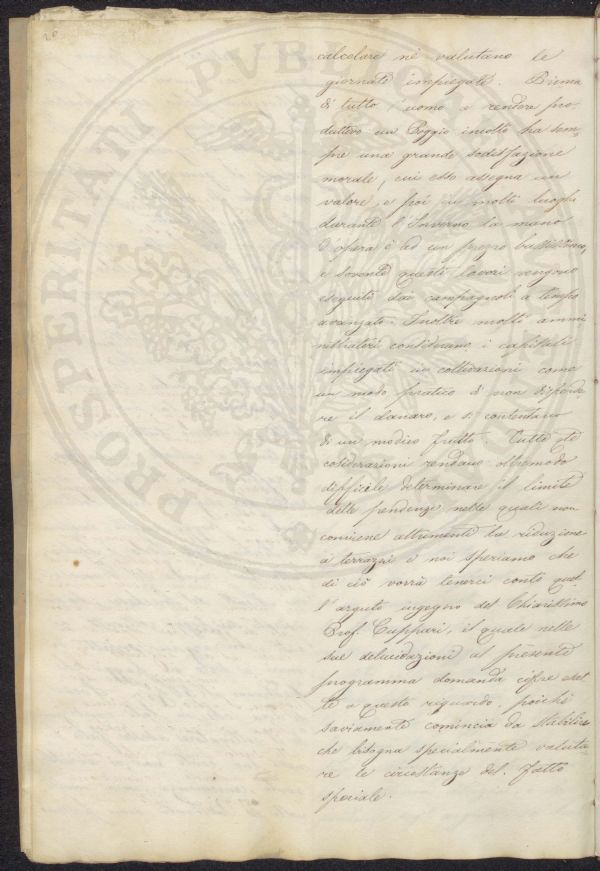 28
PROSPERITATI PUBLICAE
calcolare nè valutano le
giornate impiegate. Prima
di tutto l'uomo a rendere pro-
duttivo un Poggio incolto ha sem
pre una grande sodisfazione
morale, cui esso assegna un
valore, e poi in molti luoghi
durante l'Inverno la mano
d'opera è ad un prezzo bassissimo,
e sovente questi lavori vengono
eseguiti dai campagnoli a tempo
avanzato. Inoltre molti ammi
nistratori considerano i capitali
impiegati in coltivazioni come
un modo pratico di non disperde
re il danaro, e si contentano
di un modico frutto. Tutte ste
cosiderazioni rendano oltremodo
difficile determinare il limite
delle pendenze nelle quali non
conviene altrimenti la riduzione
a terrazzi e noi speriamo che
di ciò vorrà tenerci conto quel
l'arguto ingegno del Chiarissimo
Prof. Cuppari, il quale nelle
sue delucidazioni al presente
programma domanda cifre esat
te a questo riguardo, poichè
saviamente comincia da stabilire
che bisogna specialmente valuta
re le circostanze del fatto
speciale.